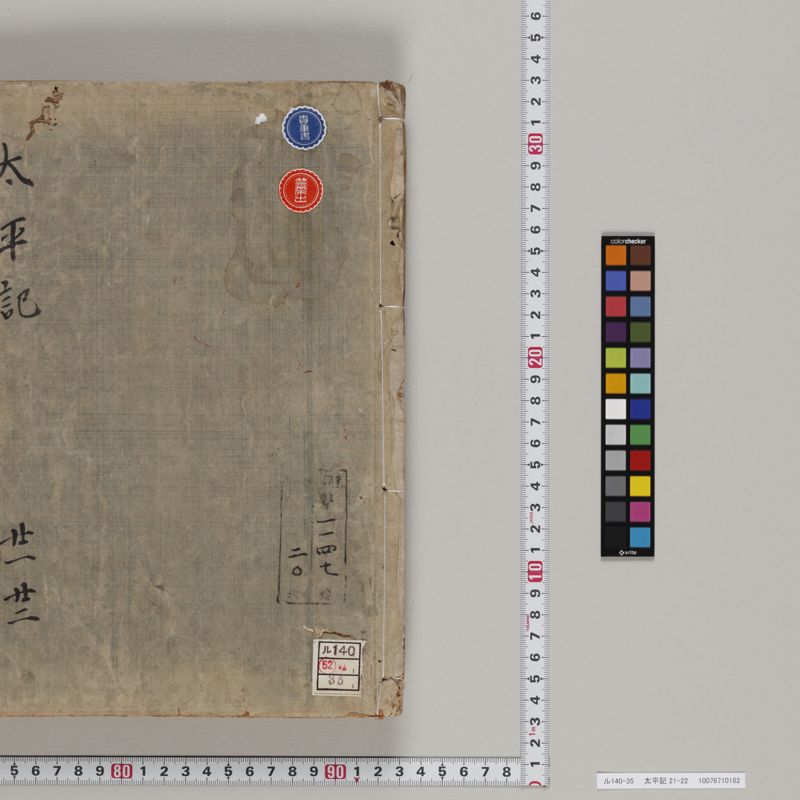 太平記
廿一
廿二
貴重書
一二四七
二〇
ル140
(52)
35
colorchecker
x-rite
ル140-35 太平記 21-22 10076710182
6 5 4 3 2 1 30 9 8 7 6 5 4 3 2 1 20 9 8 7 6 5 4 3 2 1 10 9 8 7 6 5 4 3 2 1
5 6 7 8 9 80 1 2 3 4 5 6 7 8 9 90 1 2 3 4 5 6 7 8